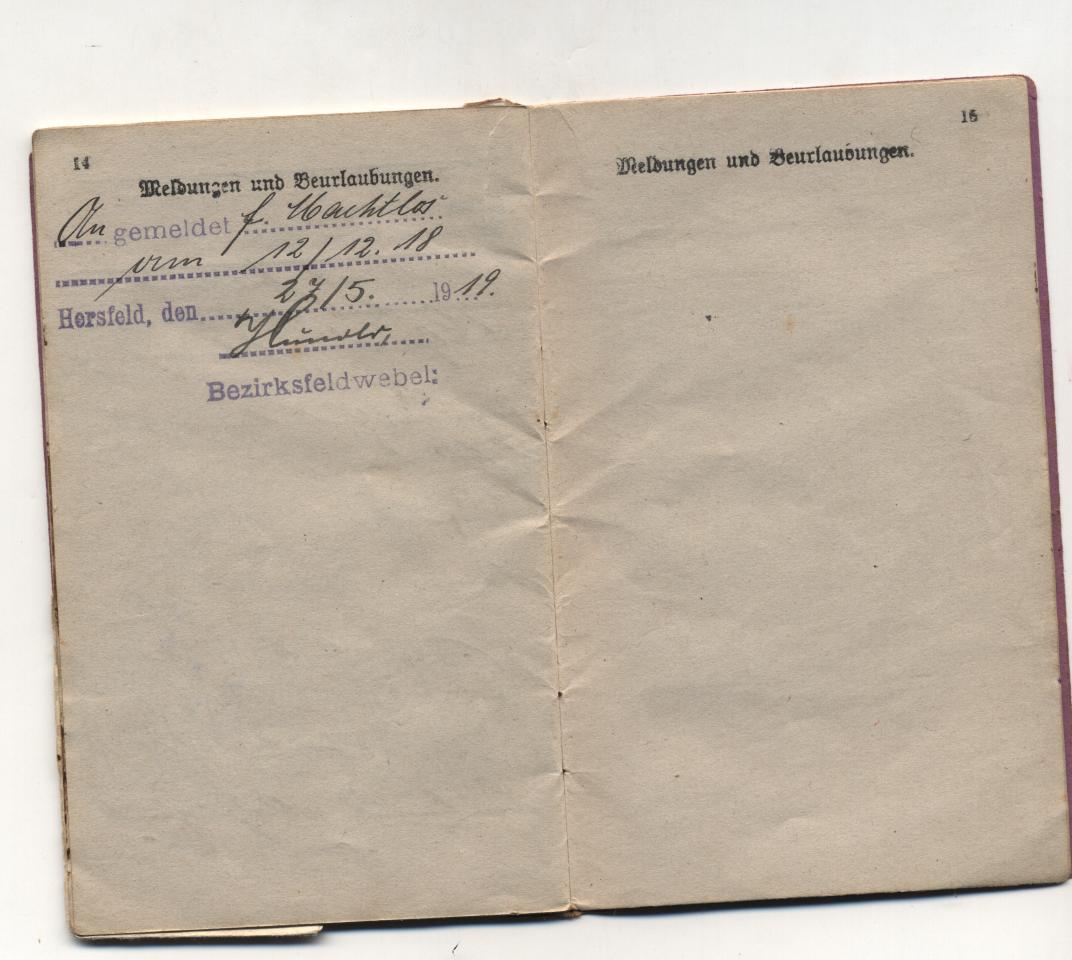 14
Meldungen und Beurlaubungen.
An gemeldet f. Machtlos
vom 12/12. 18
Hersfeld, den 27/5. 1919.
Bezirksfeldwebel:
15
Meldungen und Beurlaubungen.